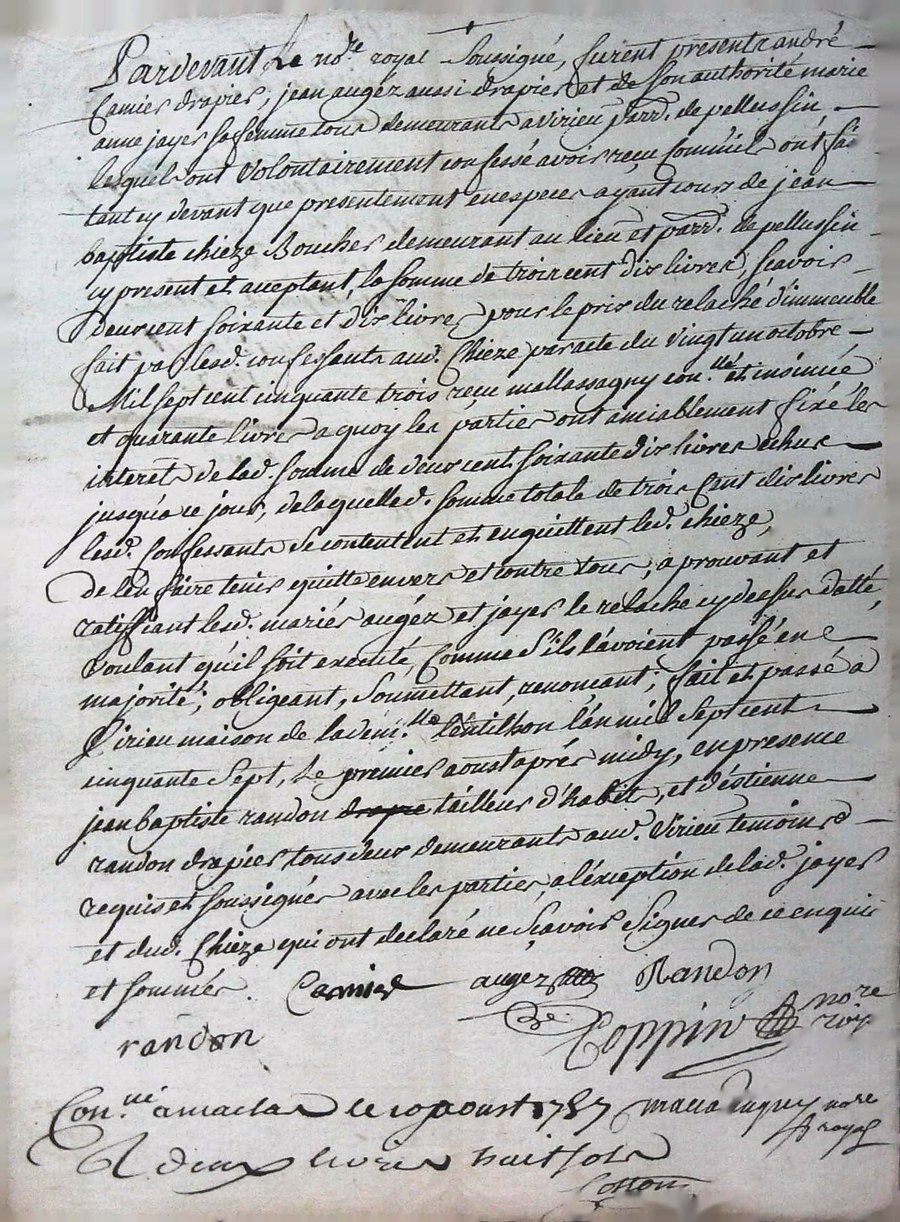 Pardevant Le no.re royal soussigné, furent presents andré
Camier drapier, jean augéz aussi drapier et de son authorité marie
anne jayer sa femme tous demeurants a virieu parr. de pellussin
lesquels ont volontairement confessé avoir reçu comm'ils ont fai
tant cy devant que presentement en especes ayant cours de jean
baptiste chieze Boucher demeurant au lieu et parr. de pellussin
cy present et acceptant, la somme de trois cent dix livres, scavoir
deux cent soixante et dix livres pour le prix du relaché d'immeuble
fait par lesd. confessants aud. Chieze par acte du vingt un octobre
Mil sept cent cinquante trois reçu mallassagny con.llé et insinué
et quarante livres a quoy les parties ont amiablement fixé les
interet de lad. somme de deux cent soixante dix livres echus
jusqu'a ce jour, de laquelle d. somme totale de trois cent dix livres
lesd. confessants se contentent et en quittent led. chieze,
de l'en faire tenir quitte envers et contre tous, aprouvant et
ratiffiant lesd. mariés augéz et jayer le relache cy dessus datté,
voulant qu'il soit executé, comme s'ils l'avoient passé en
majorité; obligeant, soumettant, renoncant; fait et passé a
Virieu maison de la dem.lle lentilhon l'an mil sept cent
cinquante sept, Le premier aoust aprés midy, en presence
jean baptiste randon drapie tailleur d'habit, et d'estienne
randon drapier tous deux demeurants aud. Virieu temoins
requis et soussignés avec les parties a l'éxception de lad. jayer
et dud. Chieze qui ont declaré ne scavoir signer de ce enquis
et sommés. Camier augez Randon
randon Coppin no.re roy
Con.llé a maclas le 10 aoust 1757 no.re royal
R deux livres huit sols